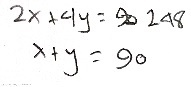 2x + 4y = 248
x + y = 90